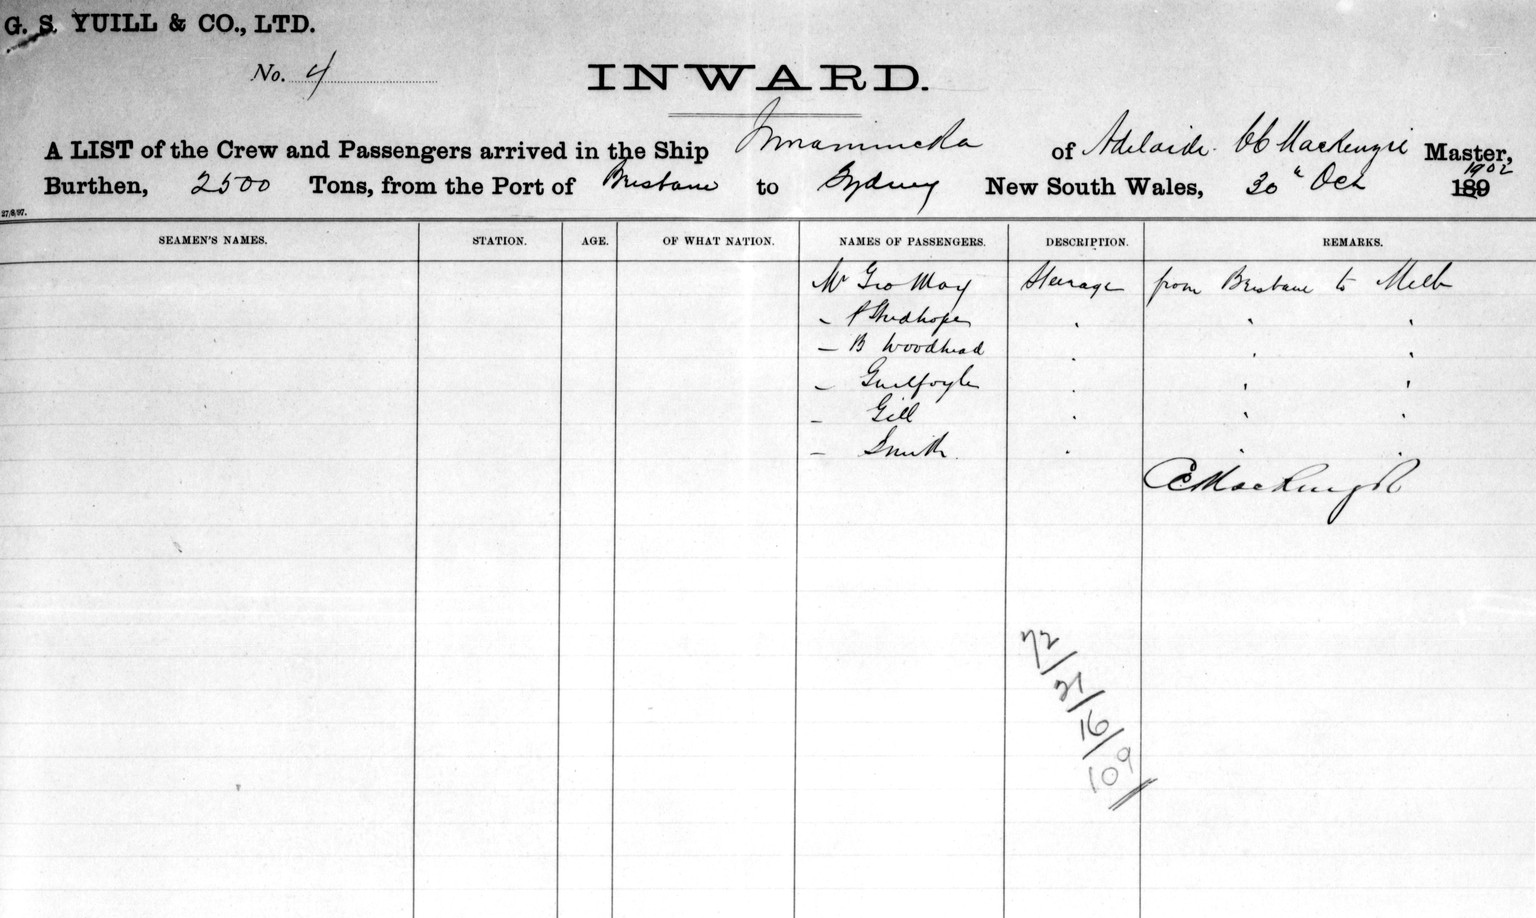 G. S. YUILL & CO., LTD.
No. 4
INWARD.
A LIST of the Crew and Passengers arrived in the Ship Innamincka of Adelaide. CC Mackenzie Master,
Burthen, 2500 Tons, from the Port of Brisbane to Sydney New South Wales, 30th Oct 1902 189
27/8/97.
SEAMEN'S NAMES. STATION. AGE. OF WHAT NATION. NAMES OF PASSENGERS. DESCRIPTION. REMARKS.
Mr Geo May Steerage from Brisbane to Melb
- P Studhope " " "
- B Woodhead " " "
- Guilfoyle " " "
- Gill " " "
- Smith " " "
CC Mackenzie
72/
21/
16/
109/